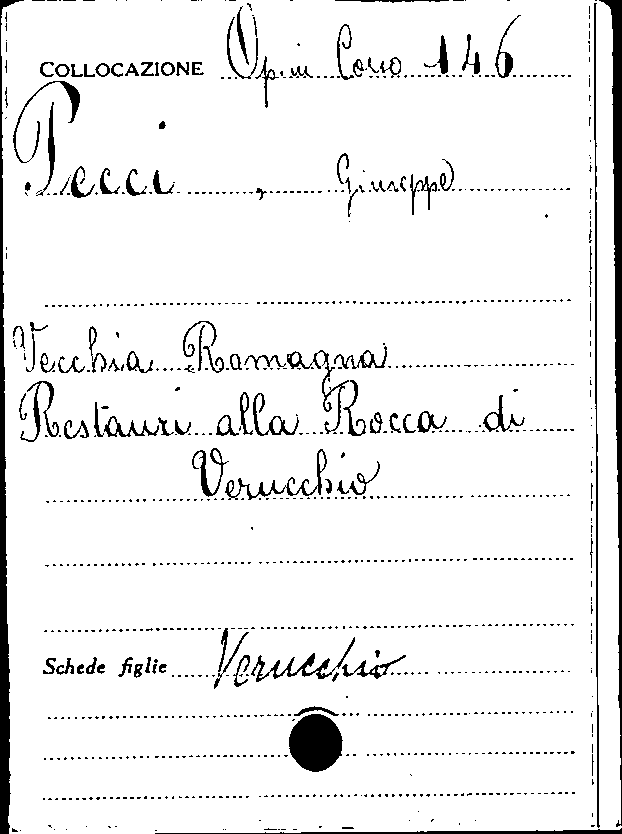 COLLOCAZIONE 146
Pecci, Giuseppe
Vecchia Romagna
Restauri alla Rocca di
Verucchio
Schede figlie Verucchio